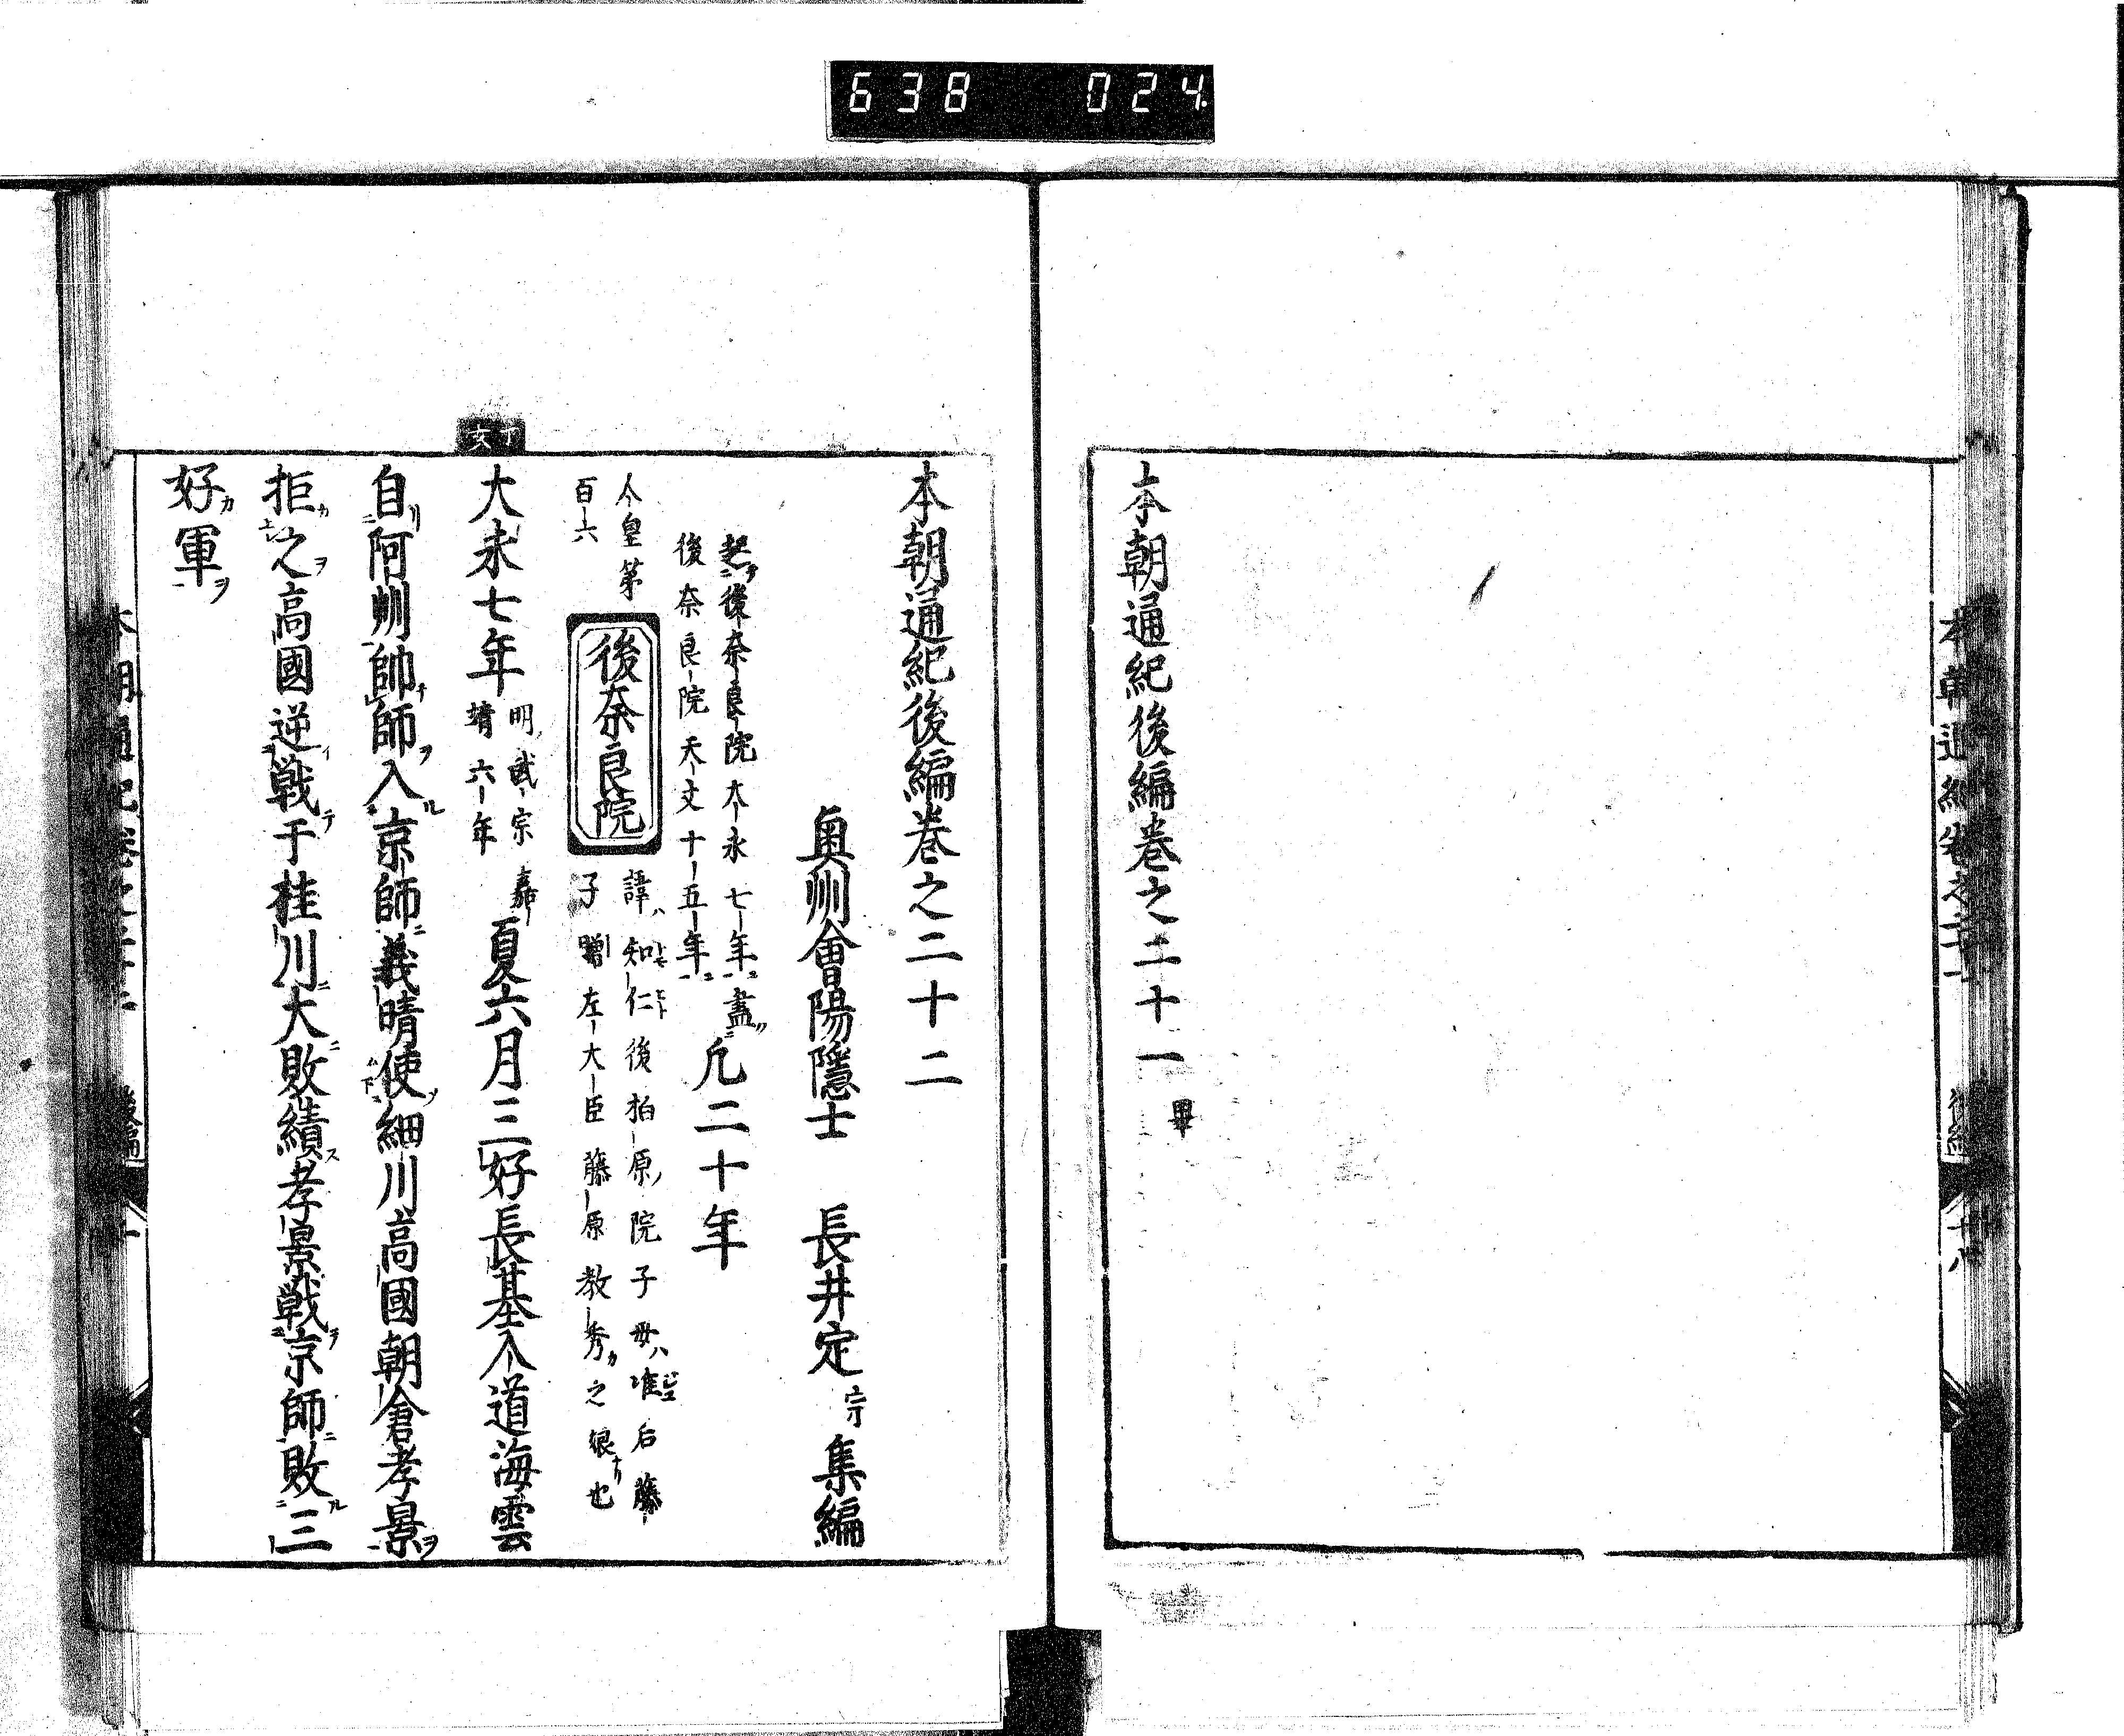 638 024
本朝通紀後編巻之二十一畢
本朝通紀後編巻之二十二
奥州會陽隱士 長井定宗集編
起後奈良院大永七年盡
後奈良院天文十五年
凡二十年
人皇第
百六
後奈良院
諱知仁後柏原院子母准后藤
子贈左大臣藤原教秀之娘也
丁亥
大永七年
明武宗嘉
靖六年
夏六月三好長基入道海雲
自阿州帥師入京師義晴使細川高國朝倉孝景
拒之高國逆戰于桂川大敗績孝景戰京師敗三
好軍